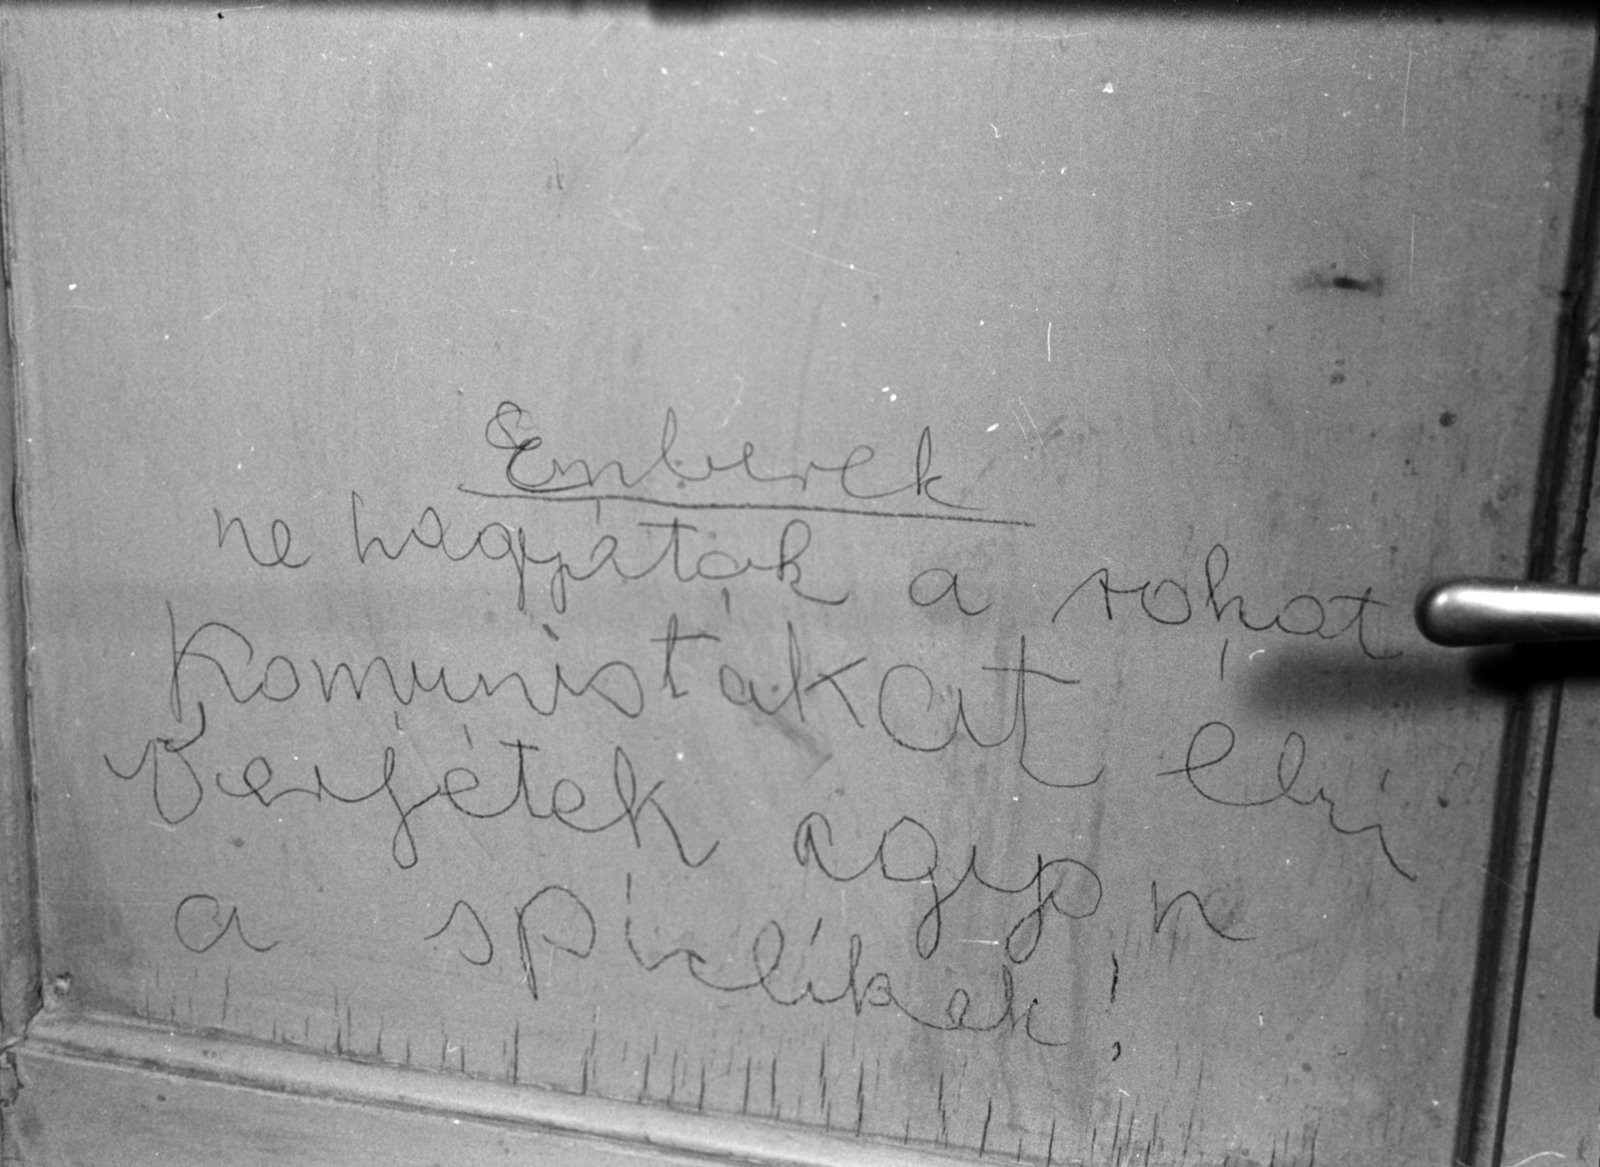 Emberek
ne hagyjáták a rohat
Komunistákat élni
Verjétek agyon
a spiclíkek!